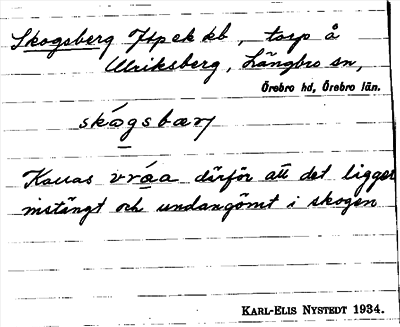 Skogsberg Jfp ek kb, torp å
Ulriksberg, Längbro sn,
Örebro hd, Örebro län.
skógsbærj
Kallas vráa därför att det ligger
instängt och undangömt i skogen
KARL-ELIS NYSTEDT 1934.